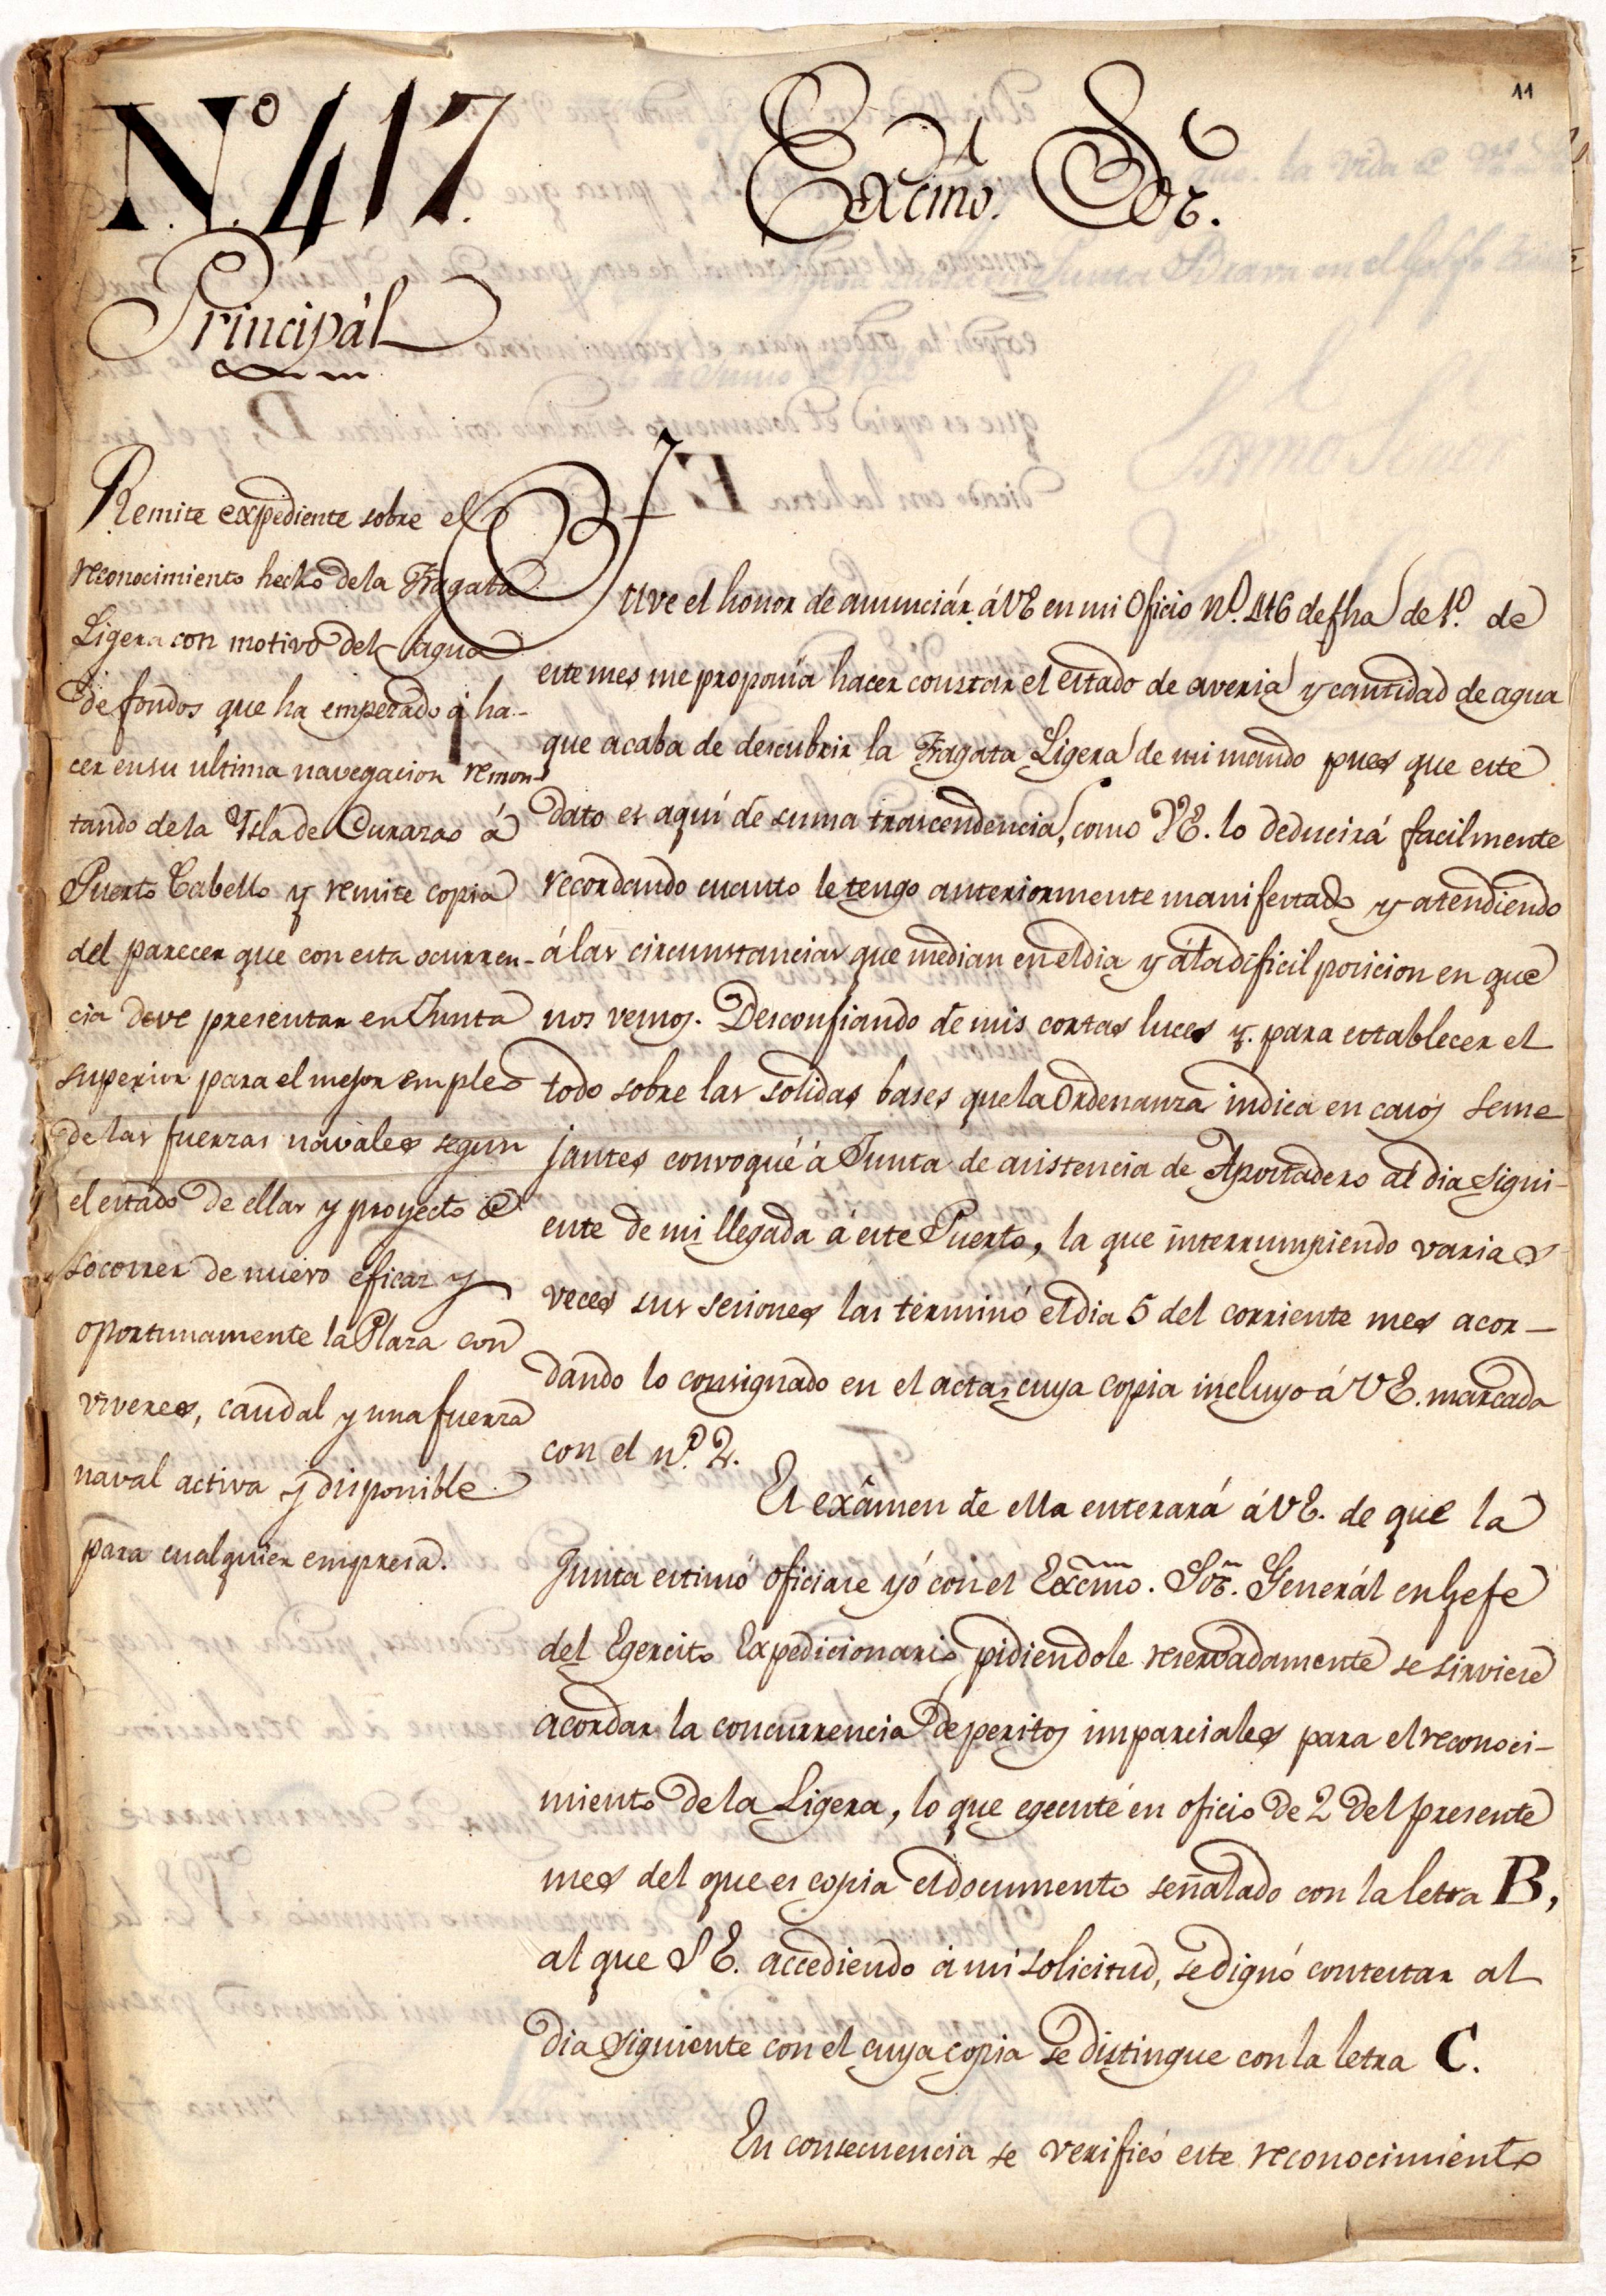 11
Nº. 417.
Principál
Excmo. Sor.
Remite expediente sobre el
reconocimiento hecho de la Fragata
Ligera con motivo del agua
de fondos que ha empezado á ha-
cer en su ultima navegacion remon-
tando de la Ysla de Curazao á
Puerto Cabello y remite copia
del parecer que con esta ocurren-
cia deve presentar en Junta
superior para el mejor empleo
de las fuerzas navales segun
el estado de ellas y proyecto de
socorrer de nuevo eficaz y
oportunamente la Plaza con
viveres, caudal y una fuerza
naval activa y disponible
para cualquier empresa.
Tuve el honor de anunciár á VE en mi Oficio Nº. 416 de fha de 1º. de
este mes me proponia hacer constar el estado de averia y cantidad de agua
que acaba de descubrir la Fragata Ligera de mi mando pues que este
dato es aquí de suma trascendencia, como VE. lo deducirá facilmente
recordando cuanto le tengo anteriormente manifestado y atendiendo
á las circunstancias que median en el dia y á la dificil posicion en que
nos vemos. Desconfiando de mis cortas luces y para establecer el
todo sobre las solidas bases que la Ordenanza indica en casos seme
jantes convoqué á Junta de asistencia de Apostadero al dia sigui-
ente de mi llegada á este Puerto, la que interrumpiendo varias
veces sus sesiones las terminó el dia 5 del corriente mes acor-
dando lo consignado en el acta, cuya copia incluyo á VE. marcada
con el nº. 2.
El exâmen de ella enterará á VE. de que la
Junta estimó oficiase yó con el Excmo. Sor. Generál en Gefe
del Egercito Expedicionario pidiendole reservadamente se sirviese
acordar la concurrencia de peritos imparciales para el reconoci-
miento de la Ligera, lo que egecuté en oficio de 2 del presente
mes del que es copia el documento señalado con la letra B,
al que S E. accediendo á mi solicitud, se dignó contestar al
dia siguiente con el cuya copia se distingue con la letra C.
En consecuencia se verificó este reconocimiento